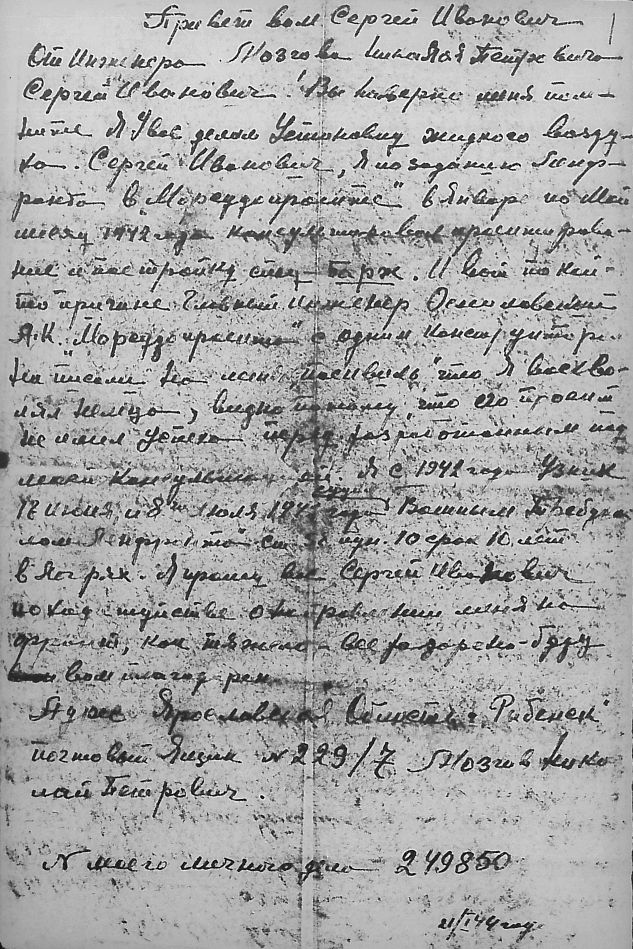 Привет вам Сергей Иванович
От инженера Мозгова Николая Петровича
Сергей Иванович! Вы наверно меня пом-
ните Я у вас делал Установку жидкого возду-
ха. Сергей Иванович, Я по заданию Ленф-
ронта в "Морсудопроекте" в Январе по Май
месяц 1942 года консультировал проектирова-
ние и постройку спец барж. И вот по какой
то причине Главный инженер Осмоловский
А.К. "Морсудопроекта" с одним конструктором
написали на меня что Я восхва-
лял немца, видно потому что его проект
не имел успеха перед разработанным под
моей консультацией. Я с 1942 года Узник
17 июня и 8го июля 1942 года Военным Трибуна-
лом Ленфронта ст 58 пун. 10 срок 10 лет
в лагерях. Я прошу вас Сергей Иванович
походатайстве о направлении меня на
фронт, как тяжело все
вам благодарен
Адрес Ярославская Область г Рыбинск
почтовый Ящик N 229/7 Мозгов Нико
лай Петрович.
N моего личного дела 249850
44 год